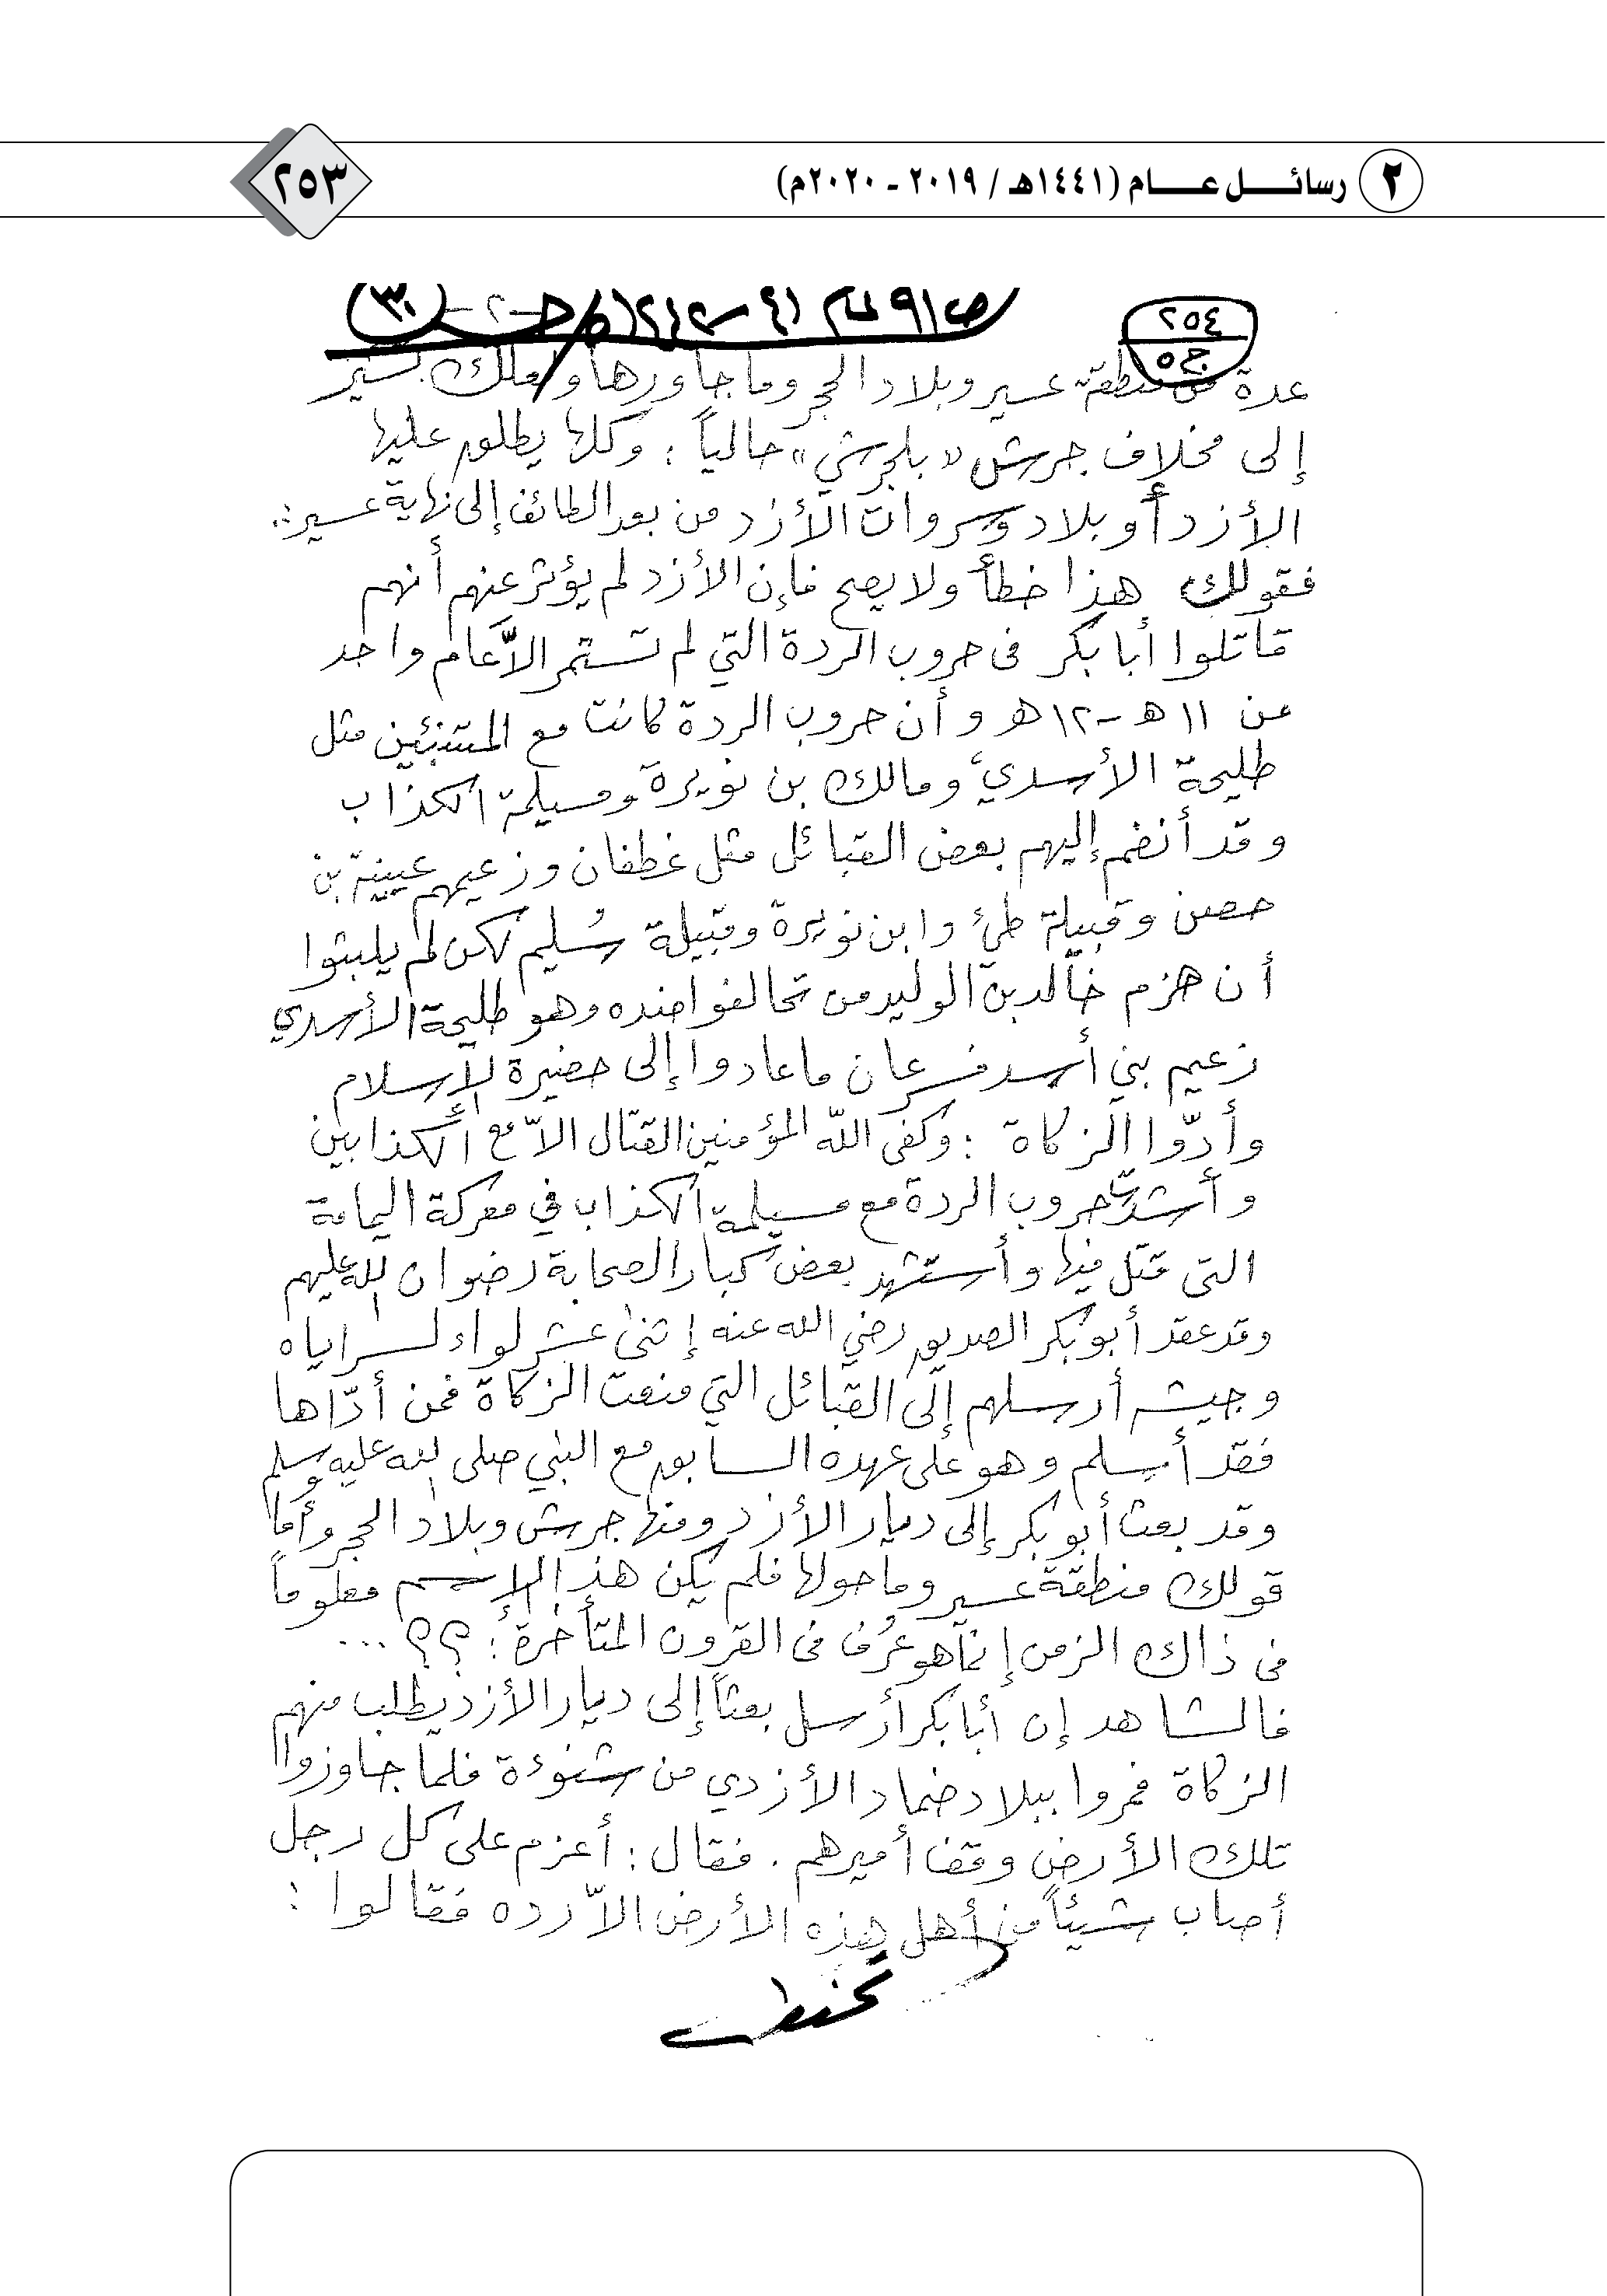 ٢ رسائل عام (١٤٤١هـ / ٢٠١٩ - ٢٠٢٠م)
٢٥٣
٢٥٤
ج٥
عدة من منطقة عسير وبلاد الحجر وما جاورها ولعلك تشير
إلى مخلاف جرش «بلجرشي» حالياً : وكلها يطلق عليها
الأزد أو بلاد وسروات الأزد من بعد الطائف إلى نهاية عسير :.
فقولك هذا خطأ ولا يصح فإن الأزد لم يؤثر عنهم أنهم
قاتلوا أبا بكر في حروب الردة التي لم تستمر الاَّ عام واحد
من ١١ هـ - ١٢ هـ وأن حروب الردة كانت مع المتنبئين مثل
طليحة الأسدي، ومالك بن نويرة ومسيلمة الكذاب
وقد أنضم إليهم بعض القبائل مثل غطفان وزعيمهم عيينة بن
حصن وقبيلة طئ وابن نويرة وقبيلة سُليم لكن لم يلبثوا
أن هزم خالد بن الوليد من تحالفوا ضده وهو طليحة الأسدي
زعيم بني أسد فسرعان ما عادوا إلى حضيرة الإسلام
وأدّوا الزكاة : وكفى الله المؤمنين القتال الاّ مع الكذابين
وأشدّ حروب الردة مع مسيلمة الكذاب في معركة اليمامة
التي قتل فيها وأستشهد بعض كبار الصحابة رضوان الله عليهم
وقد عقد أبو بكر الصديق رضي الله عنه إثنى عشر لواء لسراياه
وجيش أرسلهم إلى القبائل التي منعت الزكاة فمن أدّاها
فقد أسلم وهو على عهده السابق مع النبي صلى الله عليه وسلم
وقد بعث أبو بكر إلى ديار الأزد ومنها جرش وبلاد الحجر وأما
قولك منطقة عسير وما حولها فلم يكن هذا الإسم معلوماً
في ذاك الزمن إنما هو عرُف في القرون المتأخرة : ؟؟ ...
فالشاهد إن أبا بكر أرسل بعثاً إلى ديار الأزد يطلب منهم
الزكاة فمروا ببلاد ضماد الأزدي من شنوءة فلما جاوزوا
تلك الأرض وقف أميرهم . فقال : أعزم على كل رجل
أصاب شيئاً من أهل هذه الأرض الاّ رده فقالوا :